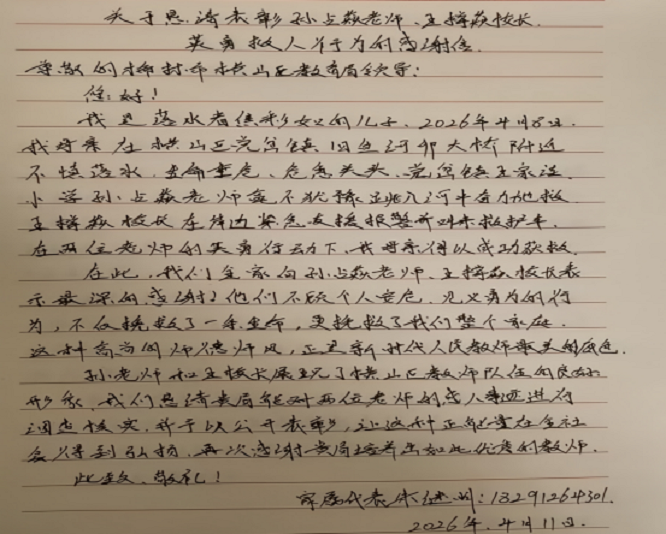 关于恳请表彰孙占敬老师、王择敬校长
英勇救人行为的感谢信
尊敬的榆林市横山区教育局领导：
您好！
我是落水者的儿子，2026年4月8日，
我母亲在横山区党岔镇 河 大桥附近
不慎落水，生命垂危，危急关头，党岔镇王家
小学孙占敬老师毫不犹豫跳入河中奋力施救
王择敬校长在岸边紧急支援报警并叫来救护车
在两位老师的英勇行动下，我母亲得以成功获救。
在此，我们全家向孙占敬老师、王择敬校长表
示最深的感谢！他们不顾个人安危，见义勇为的行
为，不仅挽救了一条生命，更挽救了我们整个家庭。
这种高尚的师德师风，正是新时代人民教师最美的底色。
孙老师和王校长展现了横山区教师队伍的良好
形象，我们恳请贵局能对两位老师的感人事迹进行
调查核实，并予以公开表彰，让这种正能量在全社
会得到弘扬，再次感谢贵局培养出如此优秀的教师。
此致、敬礼！
家属代表 ：13291264301.
2026年.4月11日.